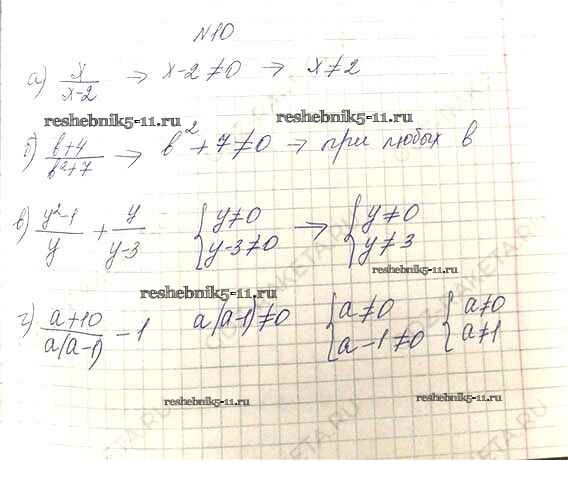 №10
а) x/(x-2) → x-2≠0 → x≠2
reshebnik5-11.ru reshebnik5-11.ru
б) (в+4)/(в²+7) → в²+7≠0 → при любых в
в) (y²-1)/y + y/(y-3) {y≠0 y-3≠0 → {y≠0 y≠3
reshebnik5-11.ru
reshebnik5-11.ru
г) (a+10)/(a(a-1)) - 1 a(a-1)≠0 {a≠0 a-1≠0 {a≠0 a≠1
reshebnik5-11.ru reshebnik5-11.ru